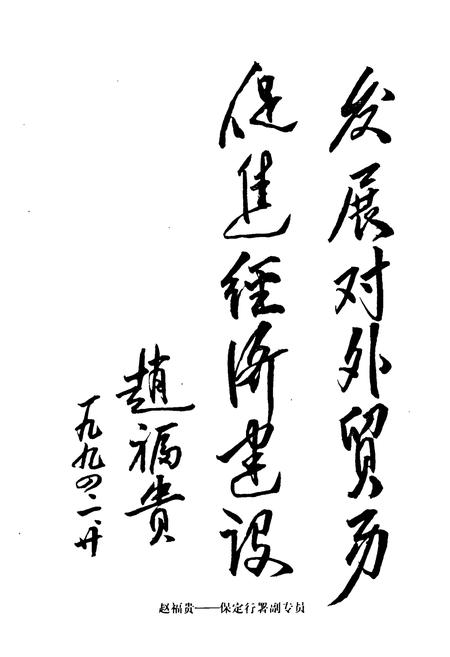 发展对外贸易
促進經济建设
趙福貴
一九九四.二.廿
赵福贵——保定行署副专员